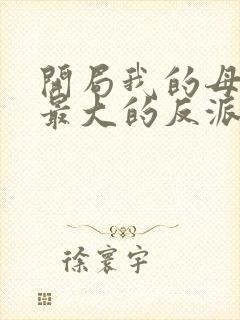 開局我的母
最大的反派
徐寰宇